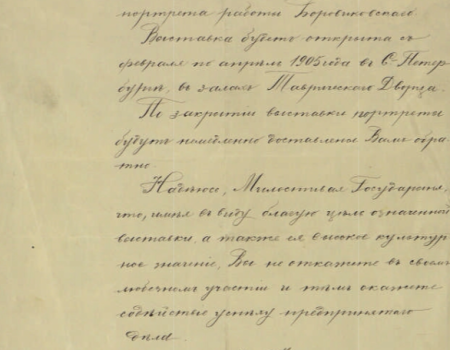 портрета работы Боровиковскаго.
Выставка будетъ открыта съ
февраля по апрѣль 1905 года въ С.-Петер
бургѣ, въ залахъ Таврическаго Дворца.
По закрытіи выставки портреты
будутъ немедленно доставлены Вамъ обра
тно.
Надѣюсь, Милостивая Государыня,
что, имѣя въ виду благую цѣль означенной
выставки, а также ея высокое культур
ное значеніе, Вы не откажете въ своемъ
любезномъ участіи и тѣмъ окажете
содѣйствіе успѣху предпринятаго
дѣла.